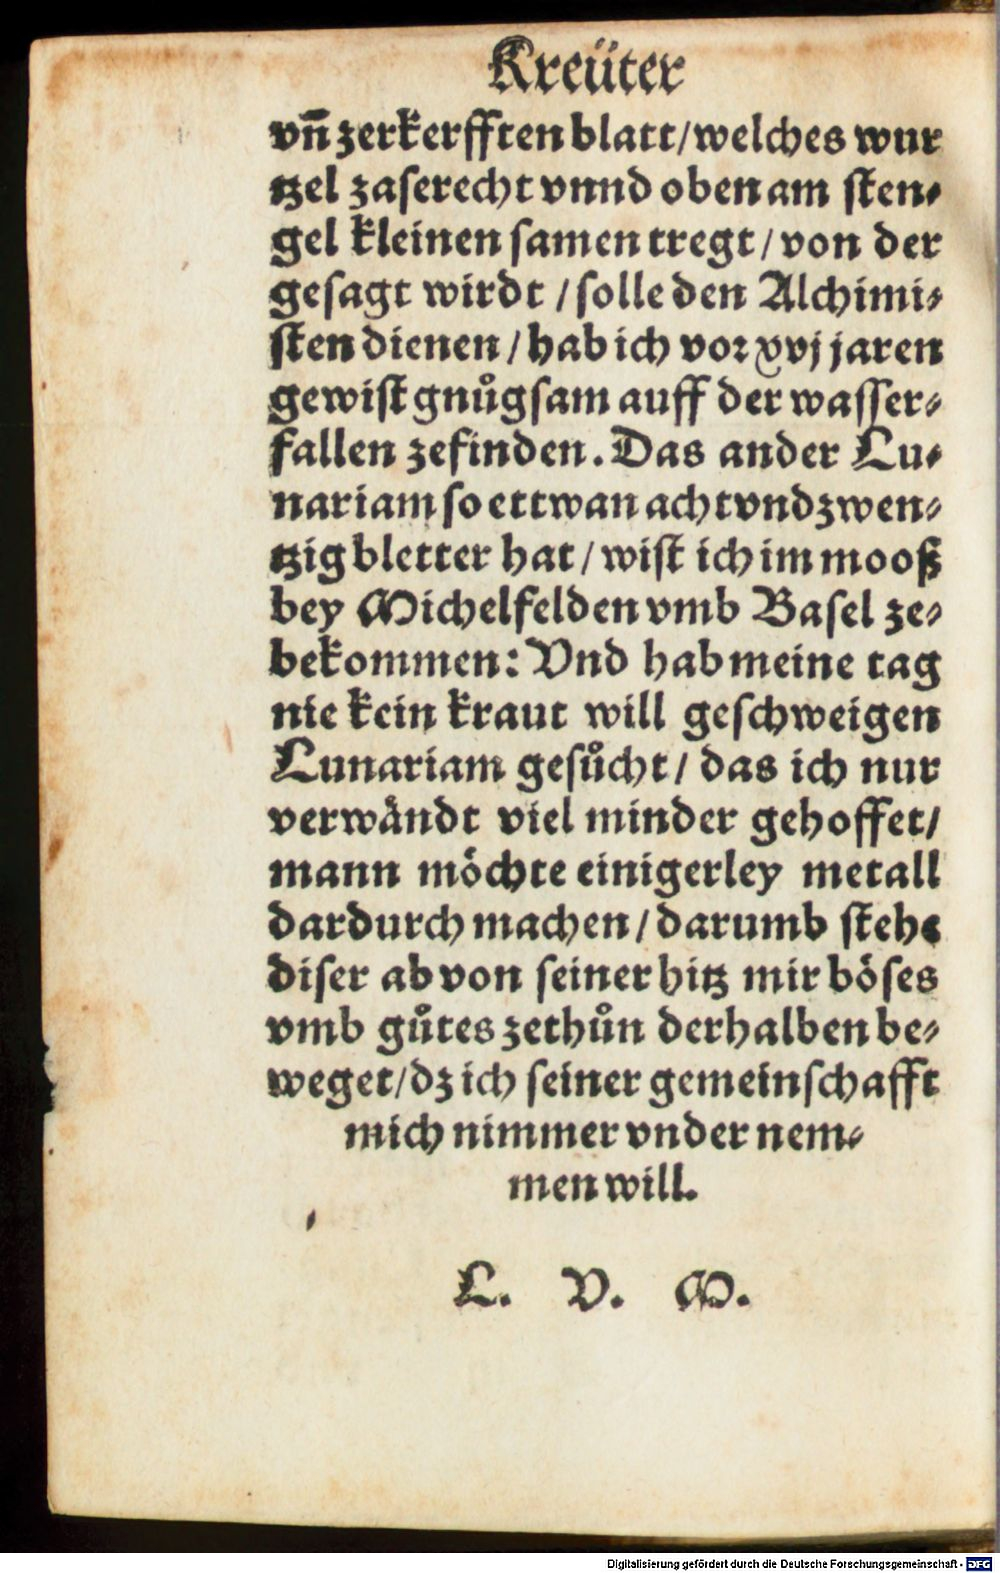 Kreüter
vn̄ zerkerfften blatt/welches wur
tzel zaserecht vnnd oben am sten⸗
gel kleinen samen tregt/von der
gesagt wirdt/solle den Alchimi⸗
sten dienen/hab ich vor xvj jaren
gewist gnůgsam auff der wasser⸗
fallen zefinden. Das ander Lu⸗
nariam so ettwan acht vnd zwen⸗
tzig bletter hat/wist ich im mooß
bey Michelfelden vmb Basel ze⸗
bekommen: Vnd hab meine tag
nie kein kraut will geschweigen
Lunariam gesůcht/das ich nur
verwåndt viel minder gehoffet/
mann möchte einigerley metall
dardurch machen/darumb stehe
diser ab von seiner hitz mir böses
vmb gůtes zethůn derhalben be⸗
weget/dz ich seiner gemeinschafft
mich nimmer vndernem⸗
men will.
L. V. M.
Digitalisierung gefördert durch die Deutsche Forschungsgemeinschaft - DFG